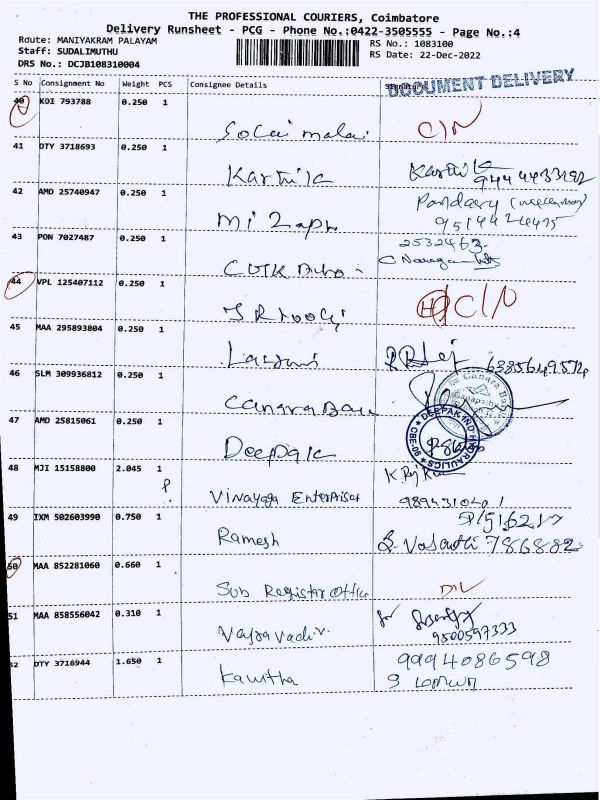 THE PROFESSIONAL COURIERS, Coimbatore
Delivery Runsheet - PCG - Phone No.:0422-3505555 - Page No.:4
Route: MANIYAKRAM PALAYAM
Staff: SUDALIMUTHU
DRS No.: DCJB108310004
1083100
RS No.: 1083100
RS Date: 22-Dec-2022
DOCUMENT DELIVERY
S No Consignment No Weight PCS Consignee Details Signature
40 KDI 793788 0.250 1
Solai malai C/N
41 DTY 3718693 0.250 1
Karthik Karthik
9444433192
42 AMD 25740947 0.250 1
Pandary
9514424475
43 PON 7027487 0.250 1
2532463
C Narayan
44 VPL 125407112 0.250 1
C/N
45 MAA 295893804 0.250 1
Laxmi 6385649574
46 SLM 309936812 0.250 1
Canara Ban
Canara Ba
47 AMD 25815061 0.250 1
Deepak
DEEPAK IND HYDRAULICS
48 MJI 15158800 2.045 1
K. Raj
Vinayaga Enterprises
49 IXM 502603990 0.750 1
516217
Ramesh S. Vasanthi 786882
50 MAA 852281060 0.660 1
Sub Registar Office D/L
51 MAA 858556042 0.310 1
9500597333
52 DTY 3716944 1.650 1
9994086598
Kavitha